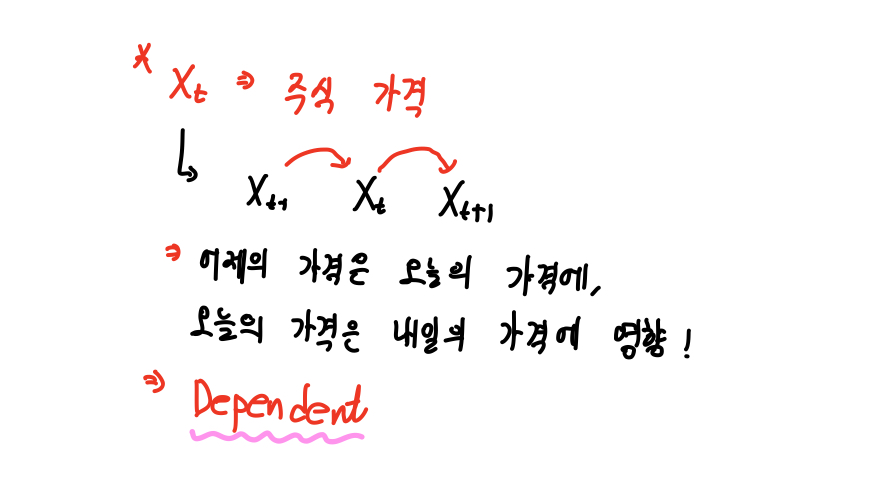 * Xt ⇒ 주식 가격
↳ Xt-1 Xt Xt+1
⇒ 어제의 가격은 오늘의 가격에,
오늘의 가격은 내일의 가격에 영향!
⇒ Dependent